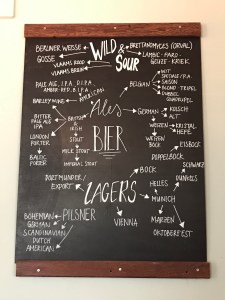 BERLINER WEISSE
GOSSE
VLAAMS ROOD
VLAAMS BRUIN
WILD &
SOUR
BRETTANOMYCES (ORVAL)
LAMBIC - FARO -
GEUZE - KRIEK
PALE ALE, I.P.A., D.I.P.A.
AMBER, RED, B.I.P.A.
AMERICAN
BARLEY WINE
BELGIAN
WIT
SPECIALE / P.A.
SAISON
BLOND TRIPEL
DUBBEL
QUADRUPEL
Ales
BITTER
PALE ALE
I.P.A.
BRITISH
IRISH
STOUT
LONDON
PORTER
BALTIC
PORTER
MILK STOUT
IMPERIAL STOUT
GERMAN
KÖLSCH
ALT
WEIZEN
KRISTAL
HEFE
WEIZEN
BOCK
BIER
EISBOCK
DOPPELBOCK
BOCK
SCHWARZ
DUNKELS
DORTMUNDER /
EXPORT
LAGERS
HELLES
MUNICH
MARZEN
OKTOBERFEST
VIENNA
PILSNER
BOHEMIAN
GERMAN
SCANDINAVIAN
DUTCH
AMERICAN